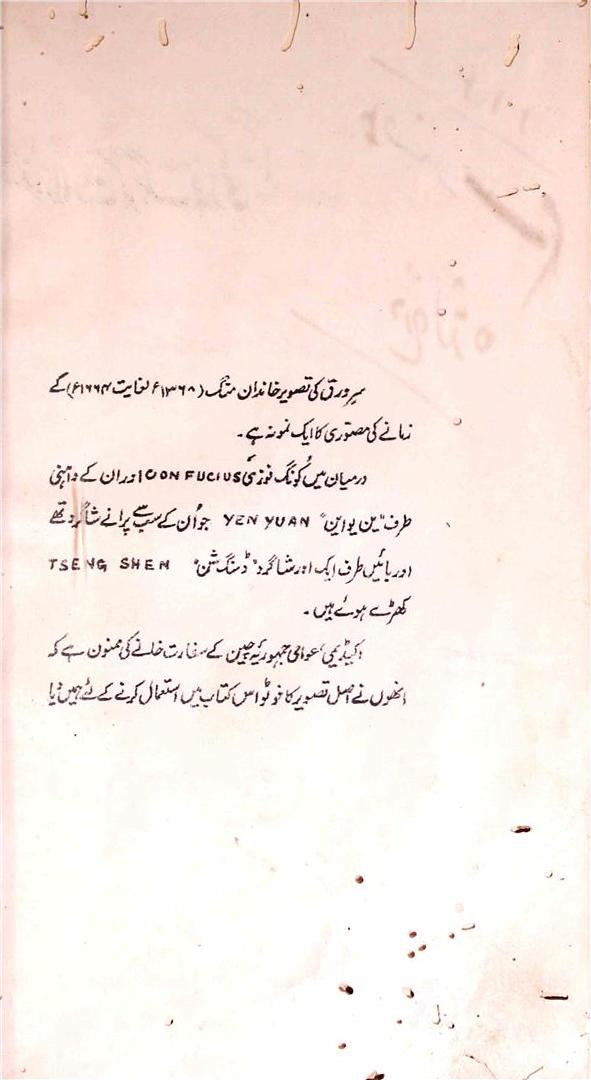 سرورق کی تصویر خاندان منگ (۱۳۶۸ء لغایت ۱۶۶۴ء) کے
زمانے کی مصوّری کا ایک نمونہ ہے۔
درمیان میں کُونگ فوزی CONFUCIUS اور ان کے داہنی
طرف "ین یواین" YEN YUAN جو اُن کے سب سے پرانے شاگرد تھے
اور بائیں طرف ایک اور شاگرد "ڈسنگ شن" TSENG SHEN
کھڑے ہوئے ہیں۔
اکیڈیمی، عوامی جمہوریۂ چین کے سفارت خانے کی ممنون ہے کہ
انھوں نے اصل تصویر کا فوٹو اس کتاب میں استعمال کرنے کے لئے ہمیں دیا